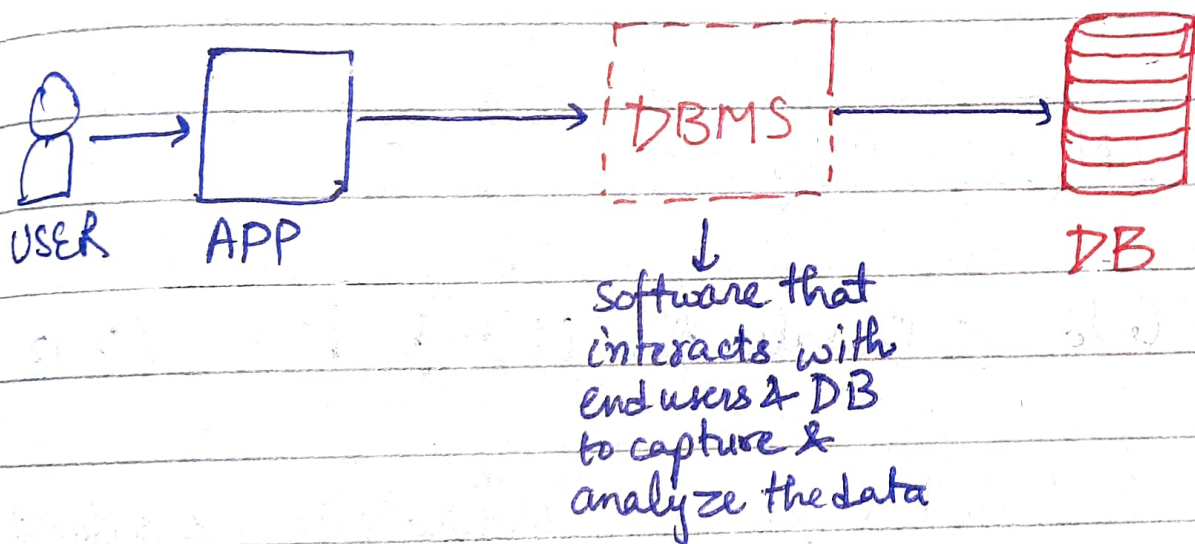 DBMS
USER
APP
DB
↓
software that
interacts with
end users & DB
to capture &
analyze the data